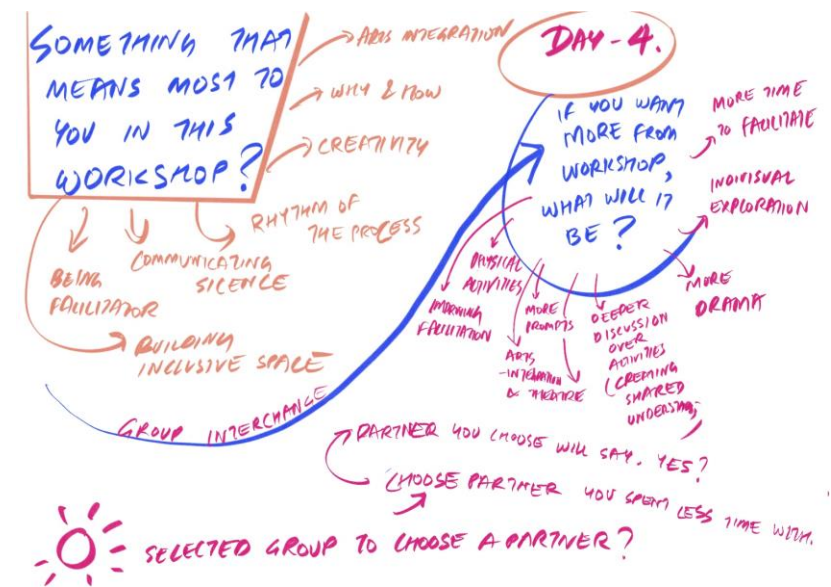 SOMETHING THAT
MEANS MOST TO
YOU IN THIS
WORKSHOP?
ARTS INTEGRATION
WHY & HOW
CREATIVITY
RHYTHM OF
THE PROCESS
COMMUNICATING
SILENCE
BEING
FACILITATOR
BUILDING
INCLUSIVE SPACE
GROUP INTERCHANGE
DAY-4.
IF YOU WANT
MORE FROM
WORKSHOP,
WHAT WILL IT
BE?
MORE TIME
TO FACILITATE
INDIVISUAL
EXPLORATION
MORE
DRAMA
DEEPER
DISCUSSION
OVER
ACTIVITIES
(CREATING
SHARED
MORE
PROMPTS
ARTS
-INTEGRATION
& THEATRE
PHYSICAL
ACTIVITIES
FACILITATION
PARTNER YOU CHOOSE WILL SAY. YES?
CHOOSE PARTNER YOU SPENT LESS TIME WITH.
SELECTED GROUP TO CHOOSE A PARTNER?